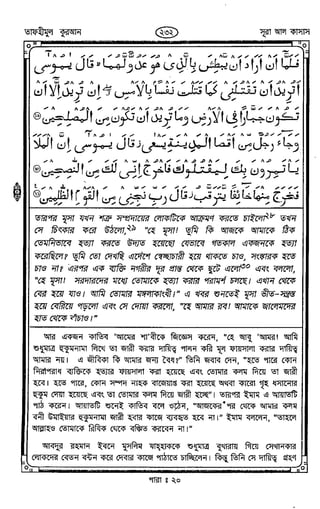 তাফহীমুল কুরআন
২৩২
সূরা আল কাসাস
فَلَمَّا أَنْ أَرَادَ أَنْ يَبْطِشَ بِالَّذِي هُوَ عَدُوٌّ لَّهُمَا قَالَ يٰمُوسَى
أَتُرِيدُ أَنْ تَقْتُلَنِي كَمَا قَتَلْتَ نَفْسًا بِالْأَمْسِ إِنْ تُرِيدُ إِلَّا أَنْ
تَكُونَ جَبَّارًا فِي الْأَرْضِ وَمَا تُرِيدُ أَنْ تَكُونَ مِنَ الْمُصْلِحِينَ
وَجَاءَ رَجُلٌ مِّنْ أَقْصَا الْمَدِينَةِ يَسْعَى قَالَ يٰمُوسَى إِنَّ الْمَلَأَ
يَأْتَمِرُونَ بِكَ لِيَقْتُلُوكَ فَاخْرُجْ إِنِّي لَكَ مِنَ النّٰصِحِينَ
فَخَرَجَ مِنْهَا خَائِفًا يَتَرَقَّبُ قَالَ رَبِّ نَجِّنِي مِنَ الْقَوْمِ الظّٰلِمِينَ
তারপর মূসা যখন শত্রু সম্প্রদায়ের লোকটিকে আক্রমণ করতে চাইলো২৮ তখন
সে চিৎকার করে উঠলো,২৯ "হে মূসা! তুমি কি আজকে আমাকে ঠিক
তেমনিভাবে হত্যা করতে উদ্যত হয়েছো যেভাবে গতকাল একজনকে হত্যা
করেছিলে? তুমি তো দেখছি এদেশে স্বেচ্ছাচারী হয়ে থাকতে চাও, সংস্কারক হতে
চাও না? এরপর এক ব্যক্তি নগরীর দূর প্রান্ত থেকে ছুটে এলো৩০ এবং বললো,
"হে মূসা! সরদারদের মধ্যে তোমাকে হত্যা করার পরামর্শ চলছে। এখান থেকে
বের হয়ে যাও। আমি তোমার মঙ্গলাকাংখী।" এ খবর শুনতেই মূসা ভীত-সন্ত্রস্ত
হয়ে বেরিয়ে পড়লো এবং সে দোয়া করলো, "হে আমার রব! আমাকে জালেমদের
হাত থেকে বাঁচাও।"
আর একজন কাতিব 'আমের শা'বীকে জিজ্ঞেস করেন, "হে আবু 'আমর! আমি
শুধুমাত্র হুকুমনামা লিখে তা জারী করার দায়িত্ব পালন করি মূল ফায়সালা করার দায়িত্ব
আমার নয়। এ জীবিকা কি আমার জন্য বৈধ?" তিনি জবাব দেন, "হতে পারে কোন
নিরপরাধ ব্যক্তিকে হত্যার ফায়সালা করা হয়েছে এবং তোমার কলম দিয়ে তা জারী
হবে। হতে পারে, কোন সম্পদ নাহক বাজেয়াপ্ত করা হয়েছে অথবা কারো গৃহ ধ্বসানোর
হুকুম দেয়া হয়েছে এবং তা তোমার কলম দিয়ে জারী হচ্ছে"। তারপর ইমাম এ আয়াতটি
পাঠ করেন। আয়াতটি শুনেই কাতিব বলে ওঠেন, "আজকের পর থেকে আমার কলম
বনী উমাইয়ার হুকুমনামা জারী হবার কাজে ব্যবহৃত হবে না।" ইমাম বললেন, "তাহলে
আল্লাহও তোমাকে রিযিক থেকে বঞ্চিত করবেন না।"
আবদুর রহমান ইবনে মুসলিম যাহহাককে শুধুমাত্র বুখারায় গিয়ে সেখানকার
লোকদের বেতন বন্টন করে দেবার কাজে পাঠাতে চাচ্ছিলেন। কিন্তু তিনি সে দায়িত্ব গ্রহণ
পারা : ২০